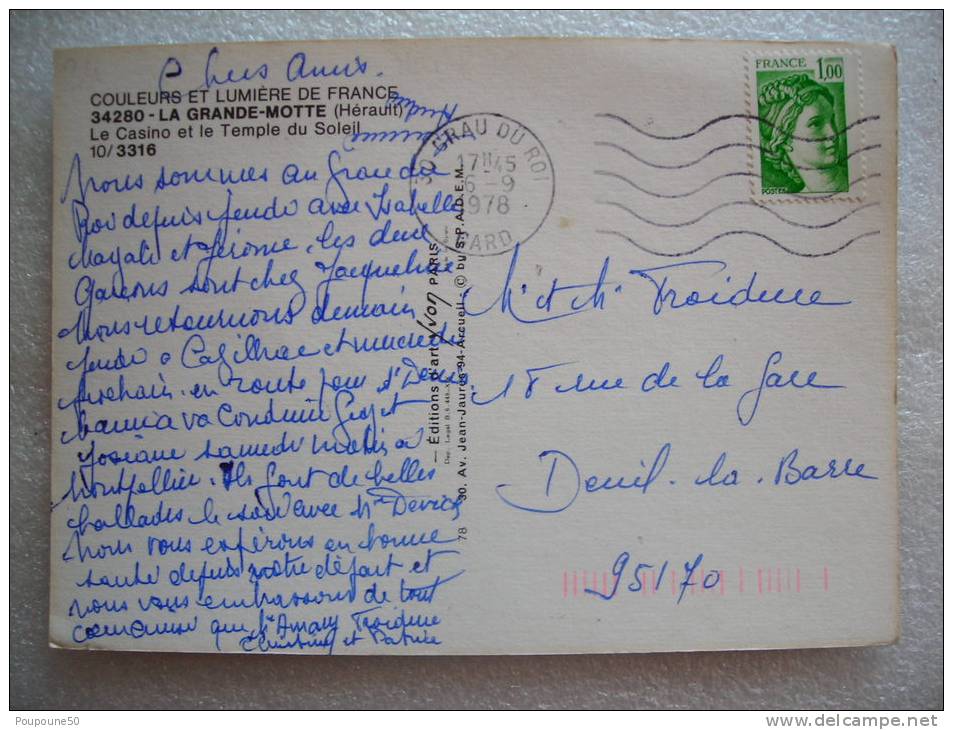 Chers Amis.
COULEURS ET LUMIÈRE DE FRANCE
34280 - LA GRANDE-MOTTE (Hérault)
Le Casino et le Temple du Soleil
10/3316
Nous sommes au Grau du
Roi depuis jeudi avec Isabelle
Magali et Jérome. les deux
garçons sont chez Jacqueline
Nous retournons demain
jeudi à et mercredi
prochain en route pour St Denis
va conduire et
Josiane samedi matin à
Montpellier. Ils font de belles
ballades le soir avec Mme
Nous vous espérons en bonne
santé depuis notre départ et
nous vous embrassons de tout
coeur que
et Patrice
— Éditions d'art Yvon PARIS
30, Av. Jean-Jaurès-94-Arcueil - © by S.P.A.D.E.M.
78
30 GRAU DU ROI
17H45
6-9
1978
GARD
FRANCE
1,00
POSTES
M. et Me Froidure
18 rue de la Gare
Deuil. la. Barre
95170
Poupoune50
delcampe.net